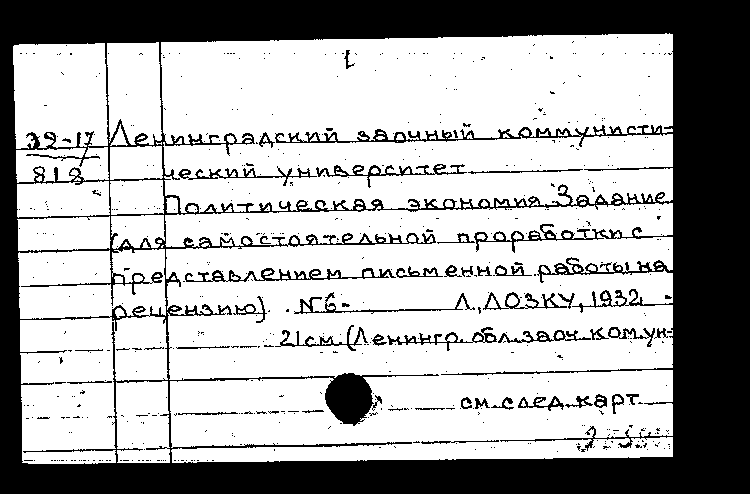 32-17 Ленинградский заочный коммунисти-
818 ческий университет.
Политическая экономия. Задание
(для самостоятельной проработки с
представлением письменной работы на
рецензию). №6-  Л., ЛОЗКУ, 1932.
21 см. (Ленингр. обл. заоч. ком. ун-
см. след. карт